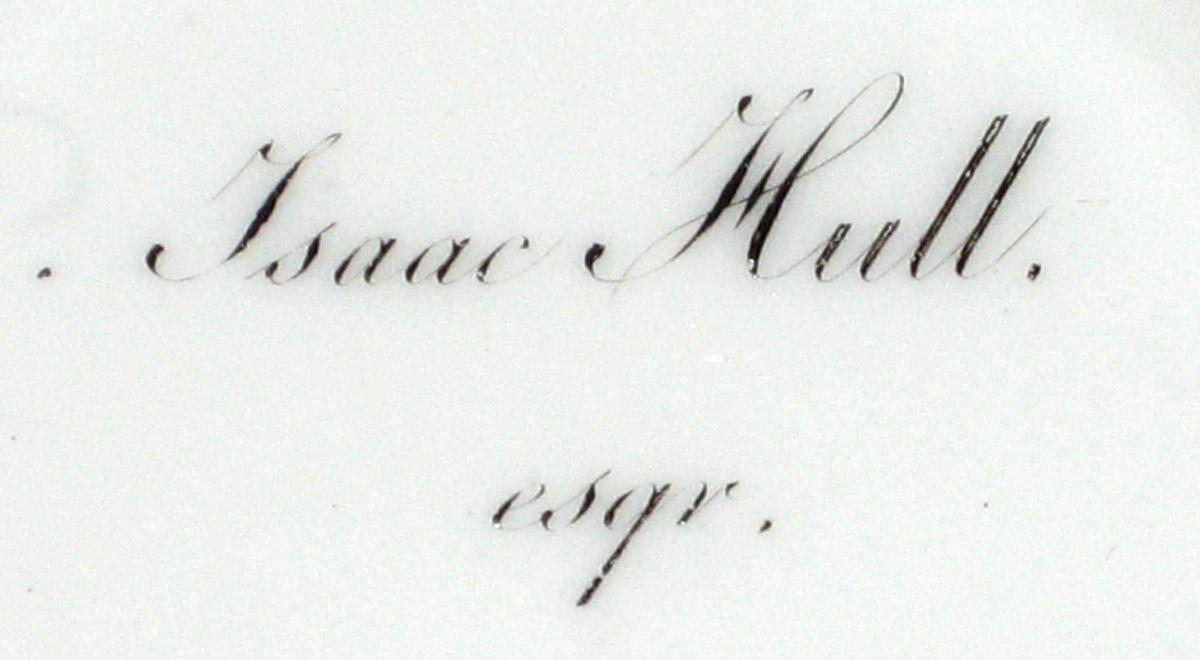 . Isaac Hull.
esqr.